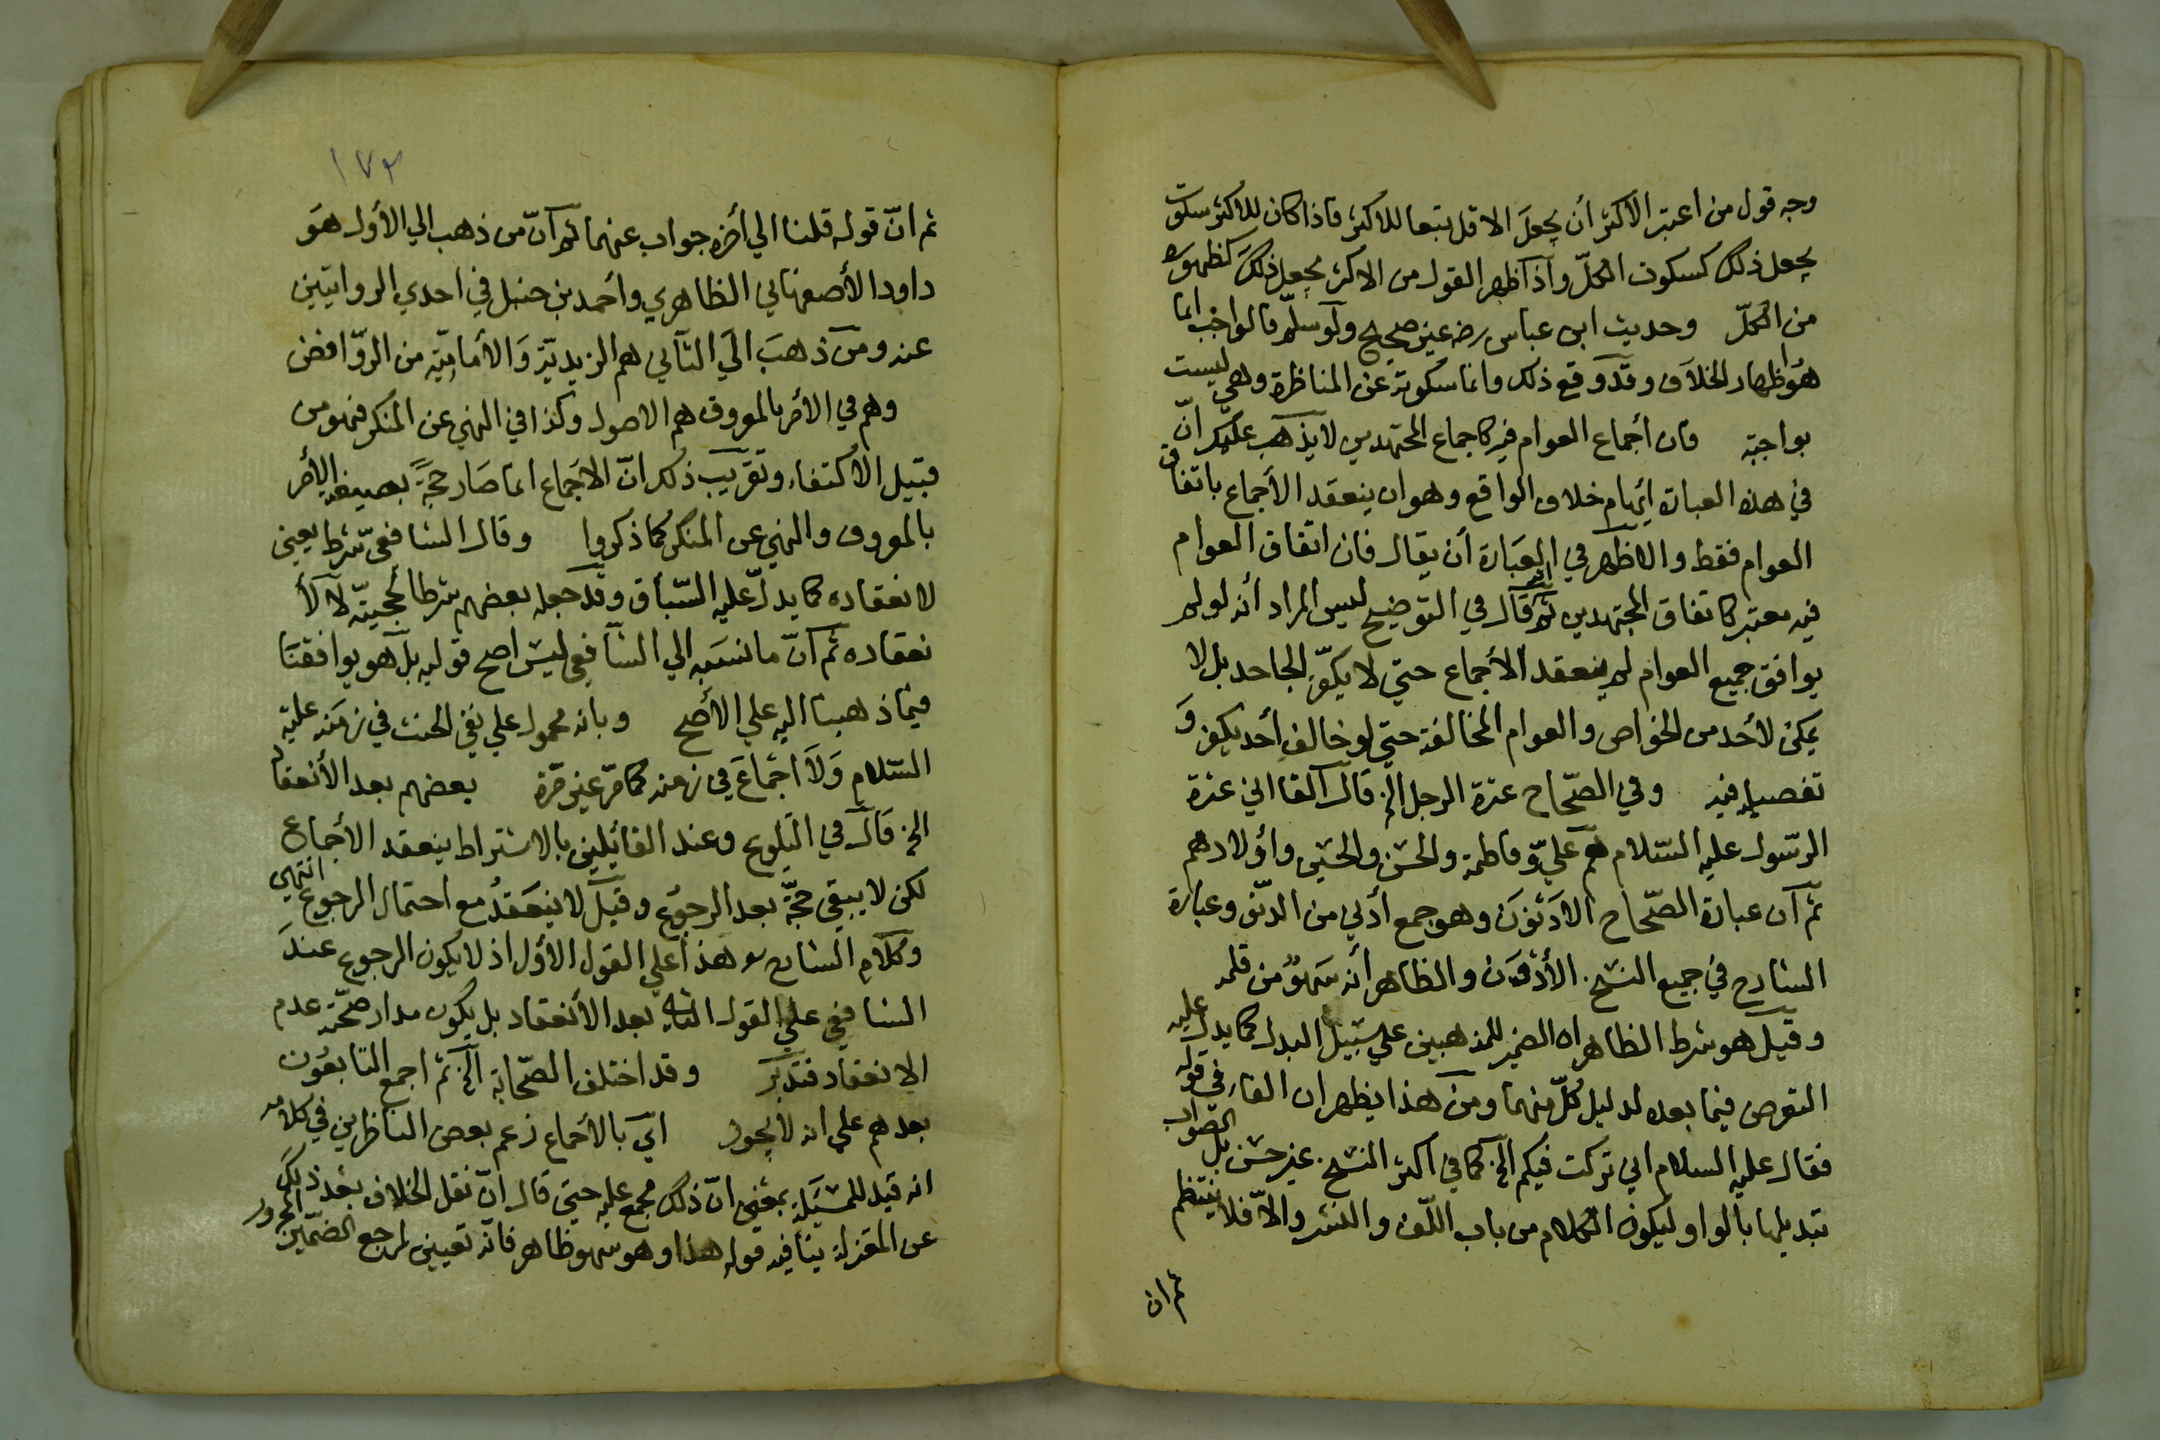 وجه قول من اعتبر الأكثر أن يجعل الاقل تبعا للاكثر فاذا كان للاكثر سكوت
يجعل ذلك كسكوت الكلّ وإذا ظهر القول من الاكثر يجعل ذلك كظهوره
من الكلّ وحديث ابن عباس رضه غير صحيح ولو سلّم فالواجب انما
هو اظهار الخلاف وقد وقع ذلك وانما سكوته عن المناظرة وهي ليست
بواجبة فان أجماع العوام فيه كاجماع المجتهدين لا يذهب عليك انّ
في هذه العبارة ايهام خلاف الواقع وهو ان ينعقد الأجماع باتفاق
العوام فقط والاظهر في العبارة أن يقال فان اتفاق العوام
فيه معتبر كاتفاق المجتهدين ثم قال في التوضيح ليس المراد أنه لو لم
يوافق جميع العوام لم ينعقد الأجماع حتي لا يكفّر الجاحد بل لا
يمكن لأحد من الخواص والعوام المخالفة حتي لو خالف أحد يكفر و
تفصيله فيه وفي الصّحاح عترة الرجل الخ قال القااني عترة
الرّسول عليه السّلام هم عليّ وفاطمة والحسن والحسين وأولادهم
ثم ان عبارة الصّحاح الادَنَوْنَ وهو جمع أدني من الدنوّ وعبارة
الشارح في جميع النسخ الأدْنون والظاهر أنه سَهوٌ من قلمه
وقيل هو شرط الظاهر ان الضمير للمذهبين علي سبيل البدل كما يدل عليه
التعرض فيما بعده لدليل كلّ منهما ومن هذا يظهر ان الفاء في قوله
فقال عليه السلام اني تركت فيكم الخ كما في اكثر النسخ غير حسن بل الصّواب
تبديلها بالواو ليكون الكلام من باب اللّف والنشر والّا فلا ينتظم
ثم ان
١٧٢
ثم انّ قوله قلنا الي أخره جواب عنهما ثم انّ من ذهب الي الأول هو
داود الأصفهاني الظاهري وأحمد بن حنبل في احدي الروايتين
عنه ومن ذهبَ الَي الثاني هم الزيديّة وَالأماميّة من الروّافض
وهم في الأمر بالمعروف هم الاصول وكذا في النهي عن المنكر فهو من
قبيل الأكتفاء وتقريب ذلك انّ الاجماع انما صَار حجةً بصيغة الأمر
بالمعروف والنهي عن المنكر كما ذكروا وقال الشافعيّ شرط يعني
لانعقاده كما يدلّ عليه السّباق وقد جعله بعضهم شرطا لحجيّته لا لأ
نعقاده ثم انّ ما نسَبه الي الشافعي ليس اصح قوليه بل هو يوافقنا
فيما ذهبنا اليه علي الأصح وبانه محمول علي نفي الخبث في زمنه عليه
السّلام وَلاَ اجماعَ في زمنه كما مرّ غير مرّة بعضهم بعد الأنعقاد
الخ قال في التلويح وعند القائلين بالاشتراط ينعقد الأجماع
لكن لا يبقي حجّة بعد الرجوع وقيل لا ينعَقدُ مع احتمال الرجوع انتهي
وكلام الشارح هذا علي القول الأول اذ لا يكون الرجوع عندَ
الشافعي علي القول الثاني بعد الأنعقاد بل يكون مدار صحّته عدم
الانعقاد فتدبّر وقد اختلف الصّحابة الخ ثم اجمع التابعُون
بعدهم علي انه لا يجوز اي بالأجماع زعم بعض الناظرين في كلامه
انه قيد للمسئلة بمعني انّ ذلك مجمع عليه حتي قال انّ نقل الخلاف بعد ذلكَ
عن المعتزلة ينافيه قوله هذا وهو سهو ظاهر فانّه تعيين لمرجع الضمّير المجرور